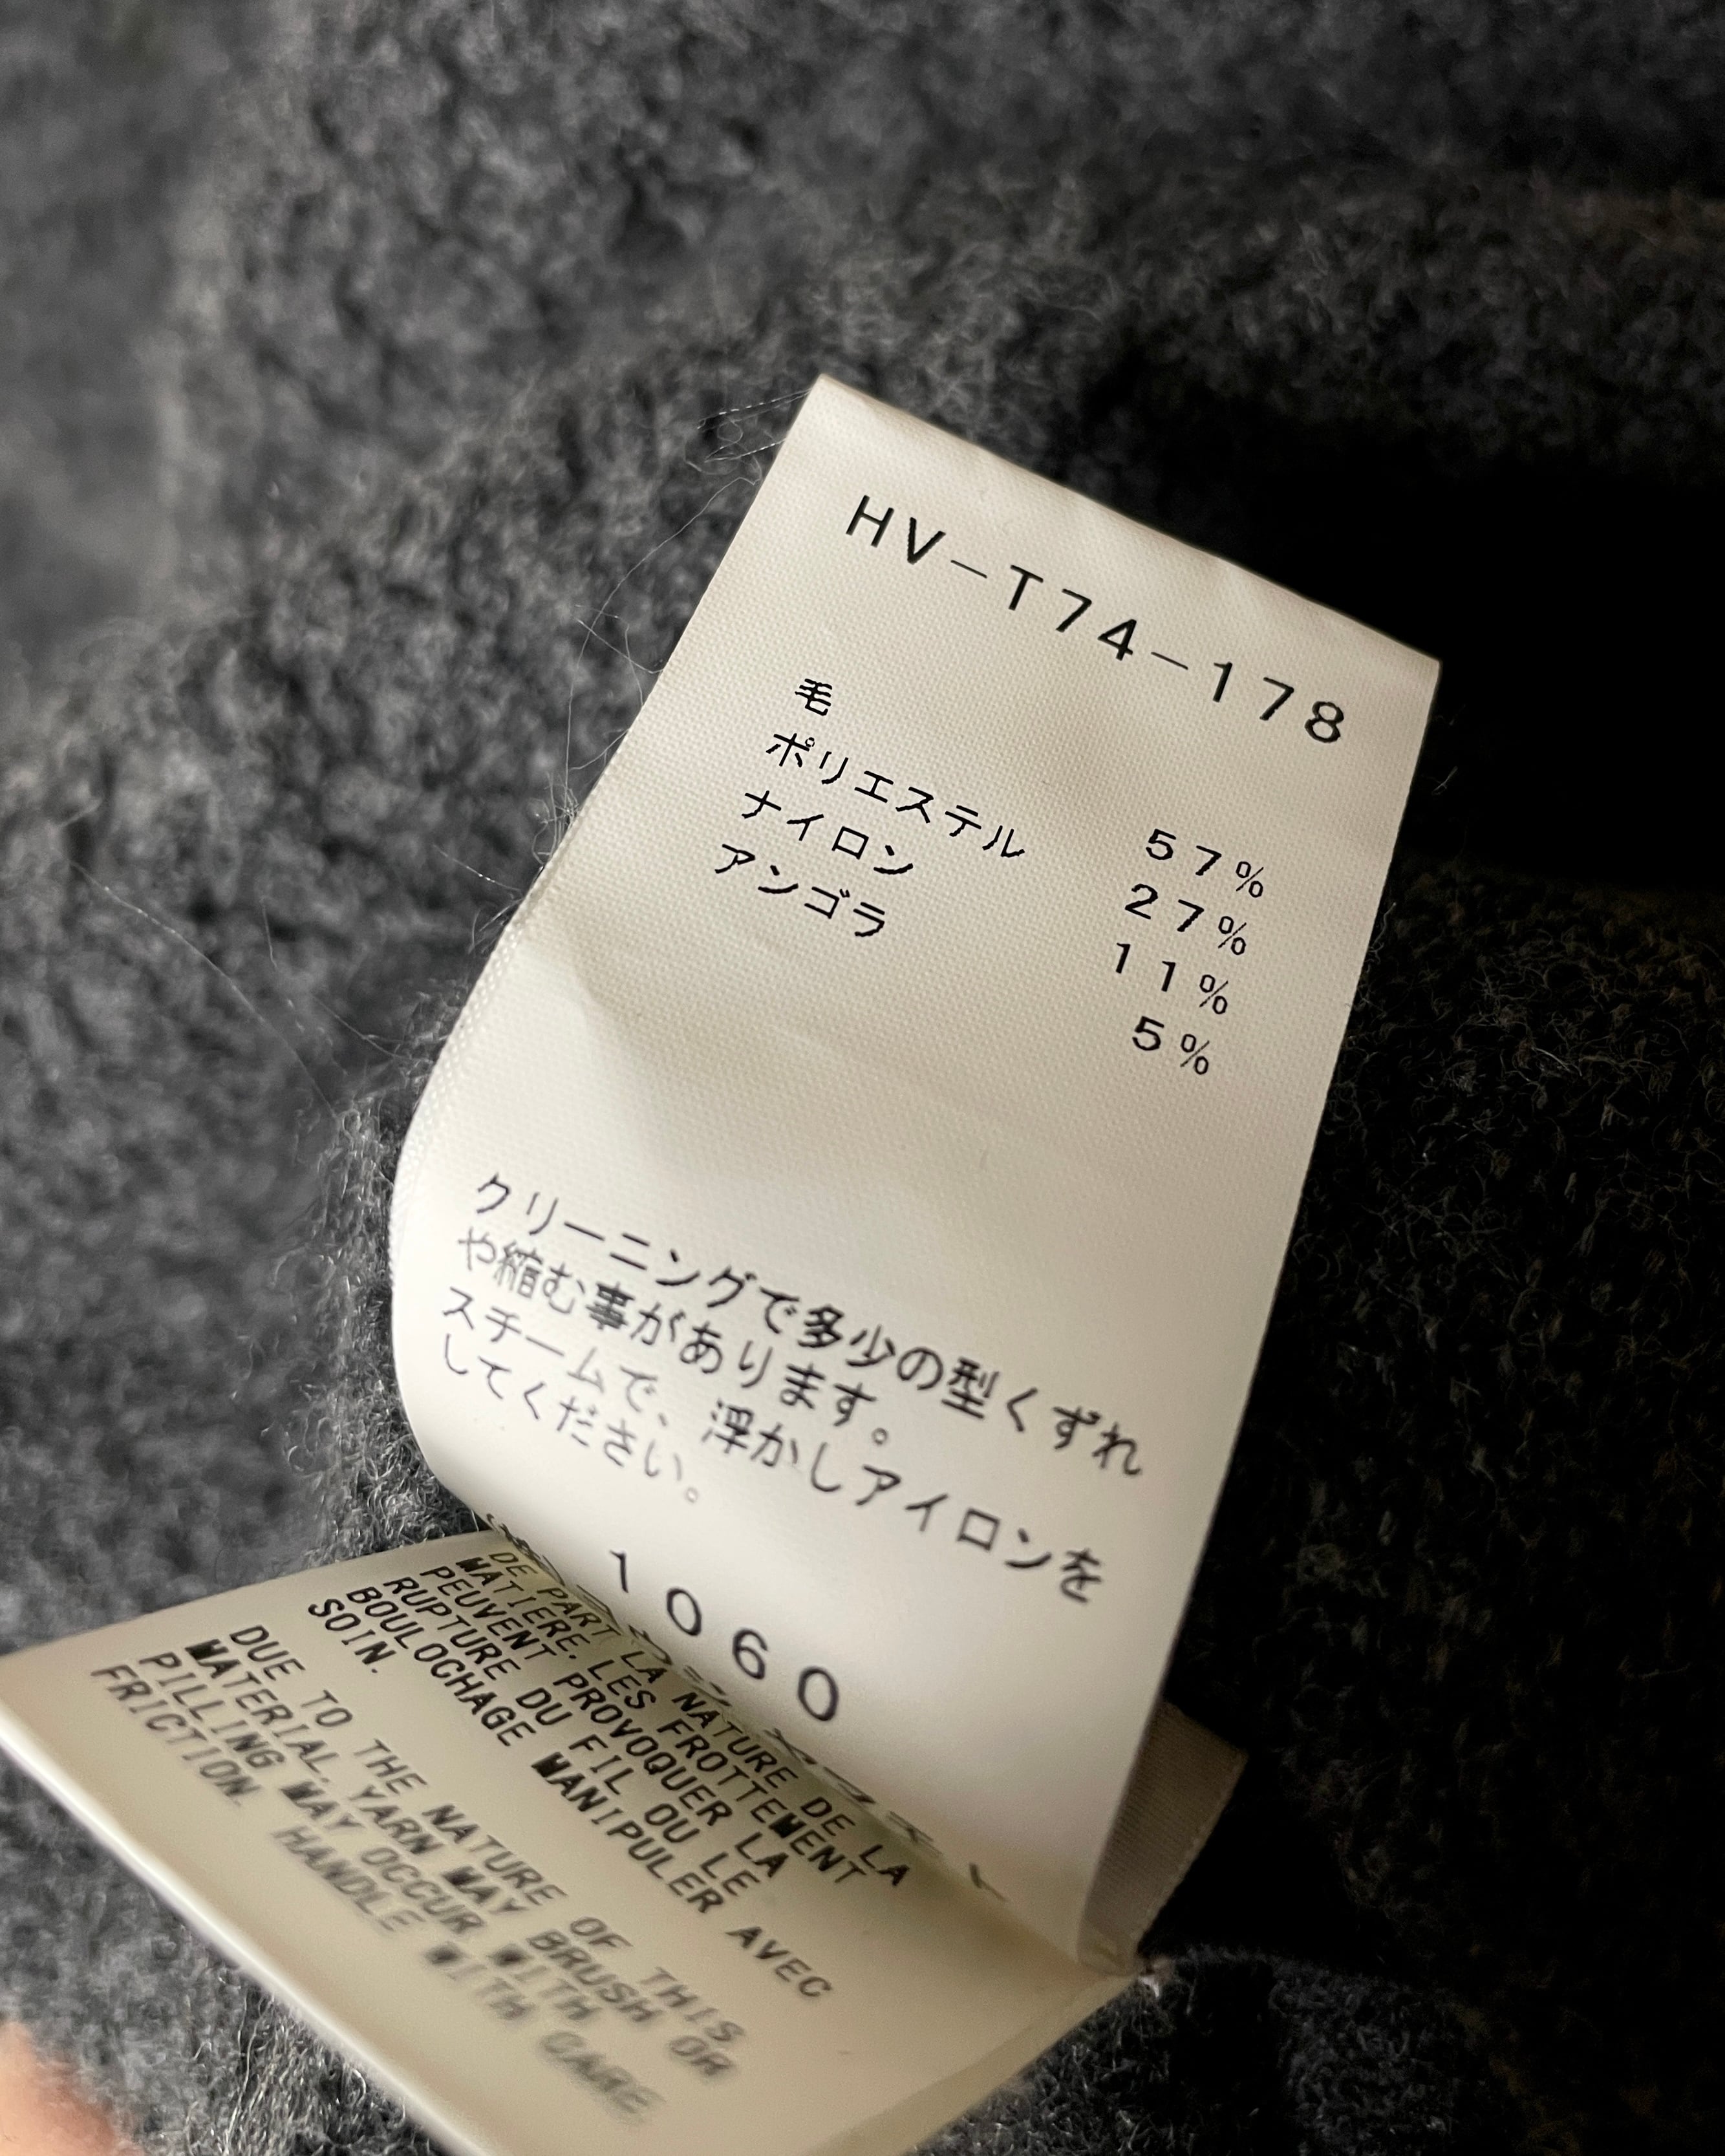 HV-T74-178
毛 57%
ポリエステル 27%
ナイロン 11%
アンゴラ 5%
クリーニングで多少の型くずれ
や縮む事があります。
スチームで、浮かしアイロンを
してください。
1060
DE PART LA NATURE DE LA
MATIERE. LES FROTTEMENT
PEUVENT PROVOQUER LA
RUPTURE DU FIL OU LE
BOULOCHAGE MANIPULER AVEC
SOIN.
DUE TO THE NATURE OF THIS
MATERIAL. YARN MAY BRUSH OR
PILLING MAY OCCUR WITH
FRICTION. HANDLE WITH CARE